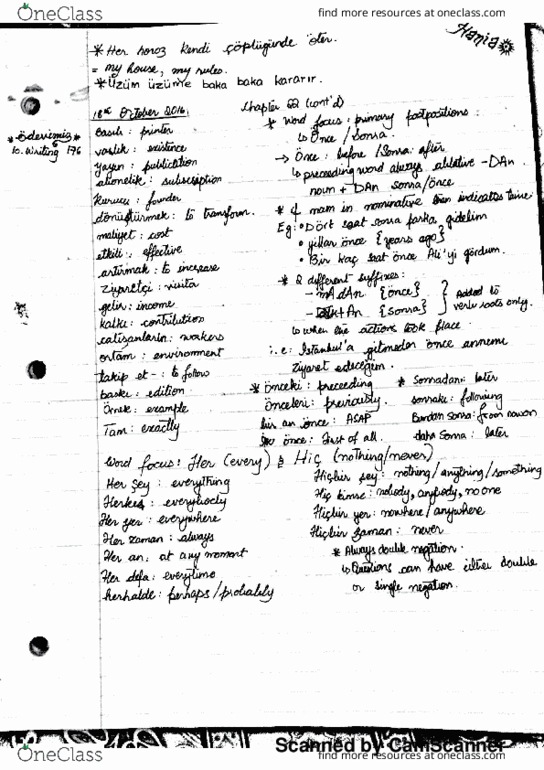 OneClass
find more resources at oneclass.com
Hania
* Her horoz kendi çöplüğünde öter.
= my house, my rules.
* Üzüm üzüme baka baka kararır.
18th October 2016.
* ödevimiz *
to. Writing 176
basılı : printer
varlık : existence
yayın : publication
abonelik : subscription
kurucu : founder
dönüştürmek : to transform.
maliyet : cost
etkili : effective
artırmak : to increase
ziyaretçi : visitor
gelir : income
katkı : contribution
çalışanların : workers
ortam : environment
takip et- : to follow
baskı : edition
Örnek : example
Tam : exactly
Chapter 22 (cont'd)
* Word focus : primary postpositions :
↳ Önce / Sonra.
→ Önce : before / Sonra : after
↳ preceding word always ablative -DAn.
noun + DAn sonra/önce
* if noun in nominative then indicates time
Eg : • Dört saat sonra parka gidelim
• yıllar önce {years ago}
• Bir kaç saat önce Ali'yi gördüm.
* 2 different suffixes :
- mAdAn {önce}
- DIktAn {sonra}
} Added to verb roots only.
↳ when the actions took place.
i.e : İstanbul'a gitmeden önce annemi
ziyaret edeceğim.
* Önceki : preceeding
Önceleri : previously.
bir an önce : ASAP
önce : first of all.
* Sonradan : later
sonraki : following
Bundan sonra : from now on
daha sonra : later
Word focus : Her (every) & Hiç (nothing/never)
Her şey : everything
Herkes : everybody
Her yer : everywhere
Her zaman : always
Her an : at any moment
Her defa : everytime
herhalde : perhaps/probably
Hiçbir şey : nothing/anything/something
Hiç kimse : nobody, anybody, no one
Hiçbir yer : nowhere/anywhere
Hiçbir zaman : never
* Always double negation.
↳ Questions can have either double
or single negation.
Scanned by CamScanner
OneClass
find more resources at oneclass.com